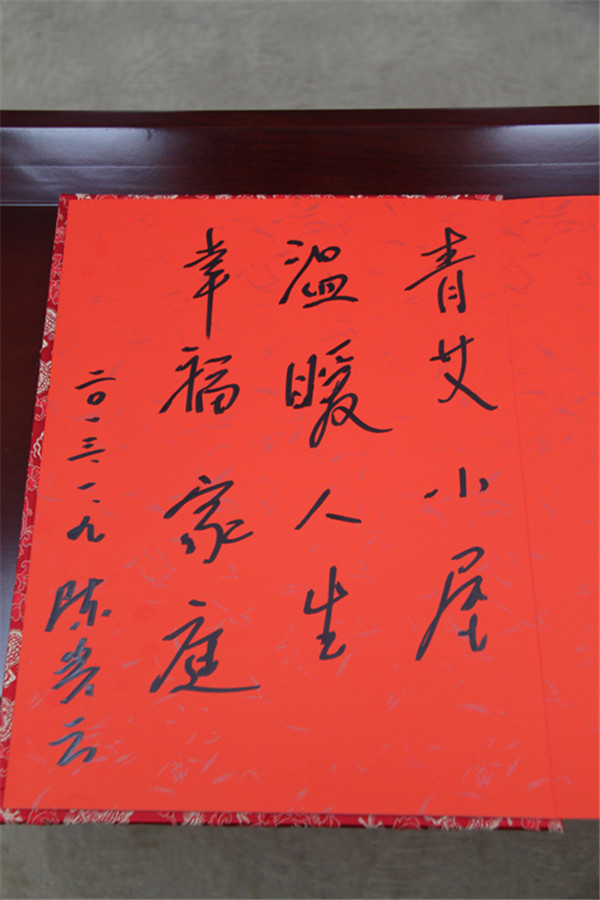 青艾小屋
温暖人生
幸福家庭
二〇一三.一.九 陈贵云